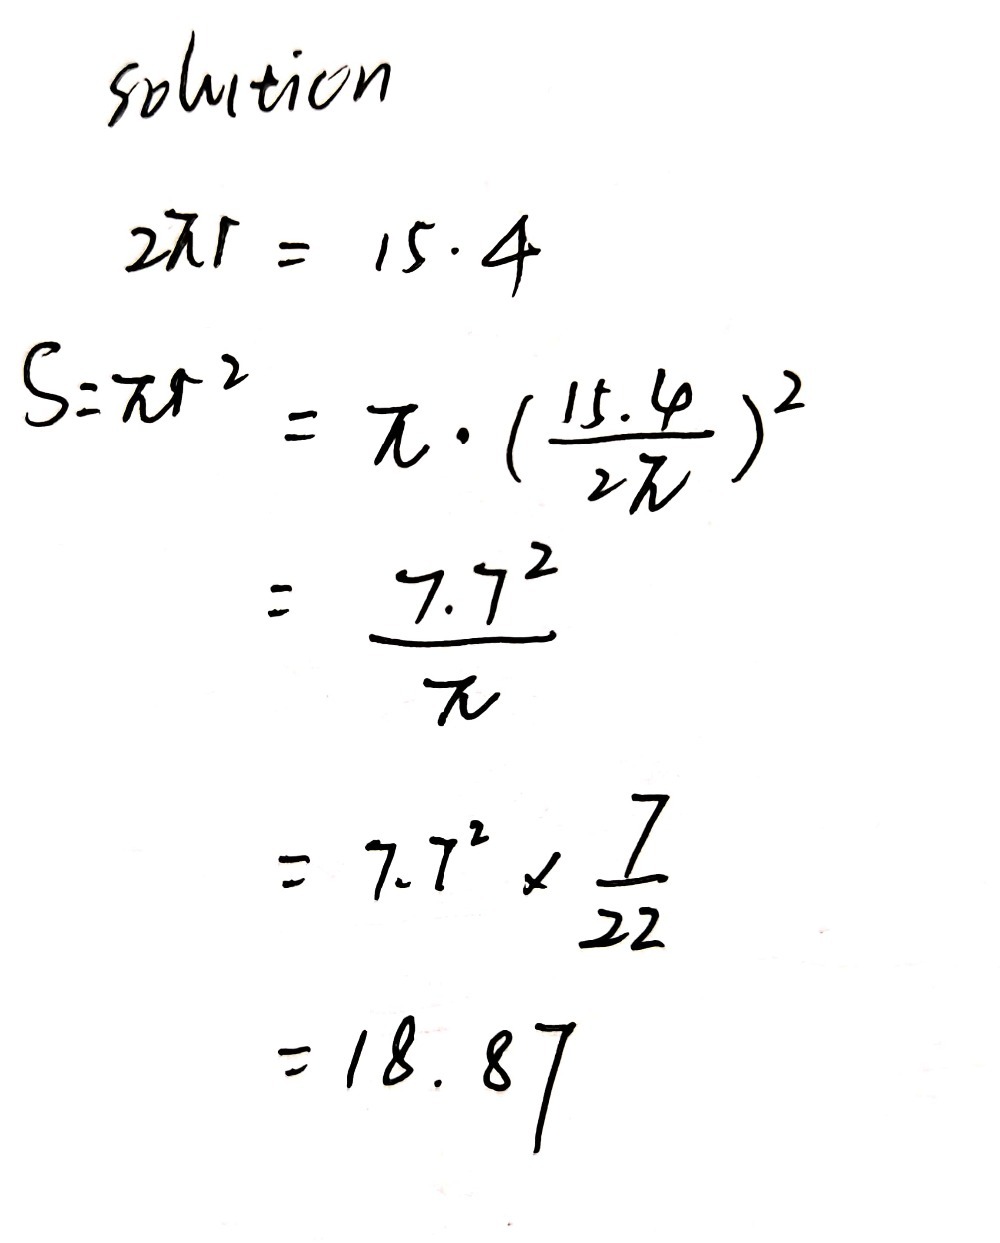 solution
2πr = 15.4
S=πr² = π·(15.4/2π)²
= 7.7²/π
= 7.7² × 7/22
= 18.87